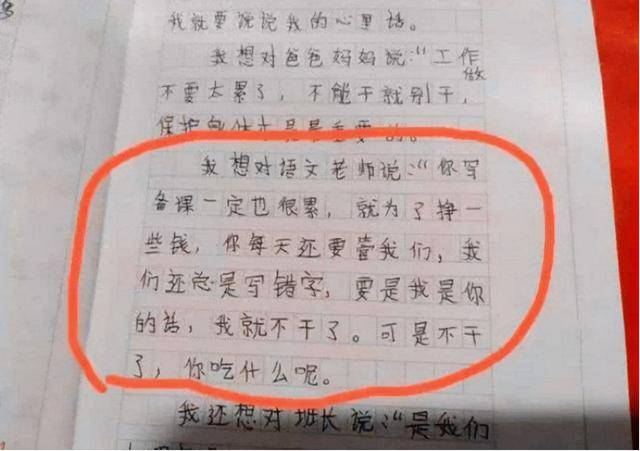 我就要说说我的心里话。
我想对爸爸妈妈说:“工作
做
不要太累了,不能干就别干,
保护身体才是最重要的。
我想对语文老师说:“你写
备课一定也很累,就为了挣一
些钱,你每天还要管我们,我
们还总是写错字,要是我是你
的话,我就不干了。可是不干
了,你吃什么呢。
我还想对班长说:“是我们